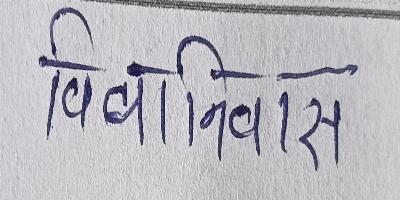 विवानिवास